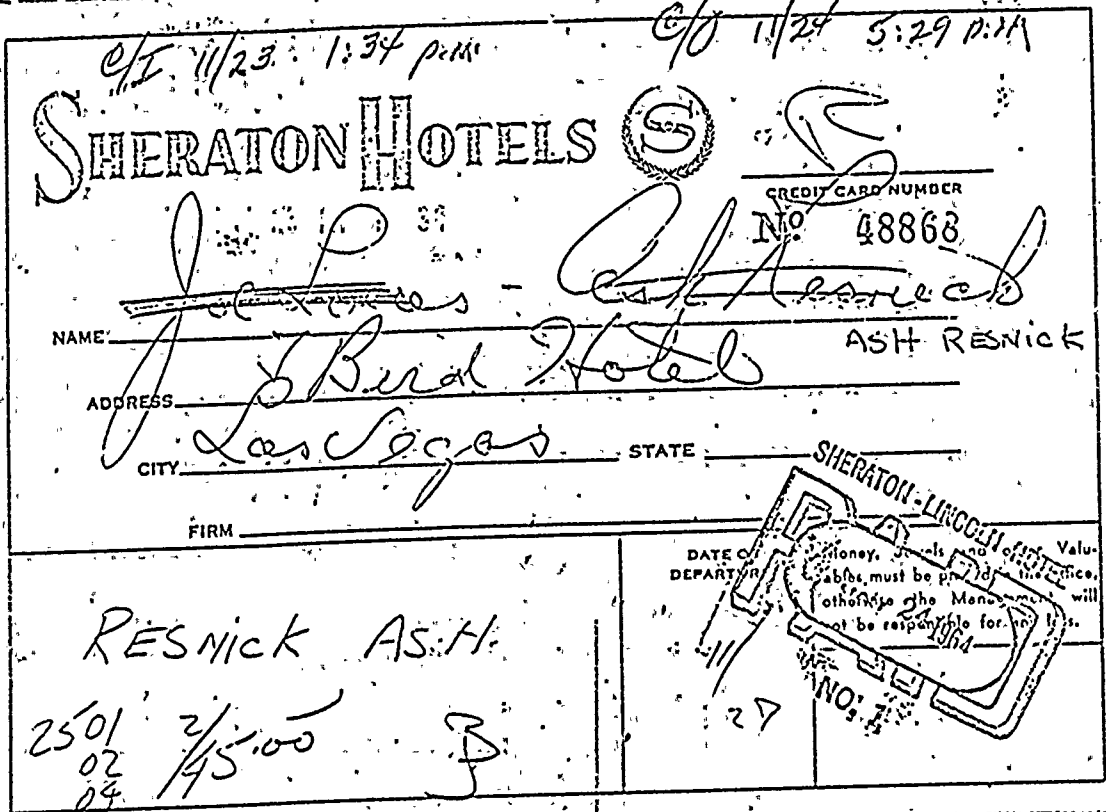 C/I 11/23 1:34 p.m. C/O 11/24 5:29 p.m
SHERATON HOTELS S
CREDIT CARD NUMBER
No 48868
Joe Louis - Ash Resnick
NAME
ASH RESNICK
ADDRESS T Bird Hotel
CITY Las Vegas STATE
FIRM
DATE OF DEPARTURE
Money, Jewels and other Valu-
ables must be placed in the office,
otherwise the Management will
not be responsible for any loss.
SHERATON-LINCOLN HOTEL
PAID
24 1964
NO. 1
11/
27
RESNICK ASH
2501 2/45.00 B
02
04